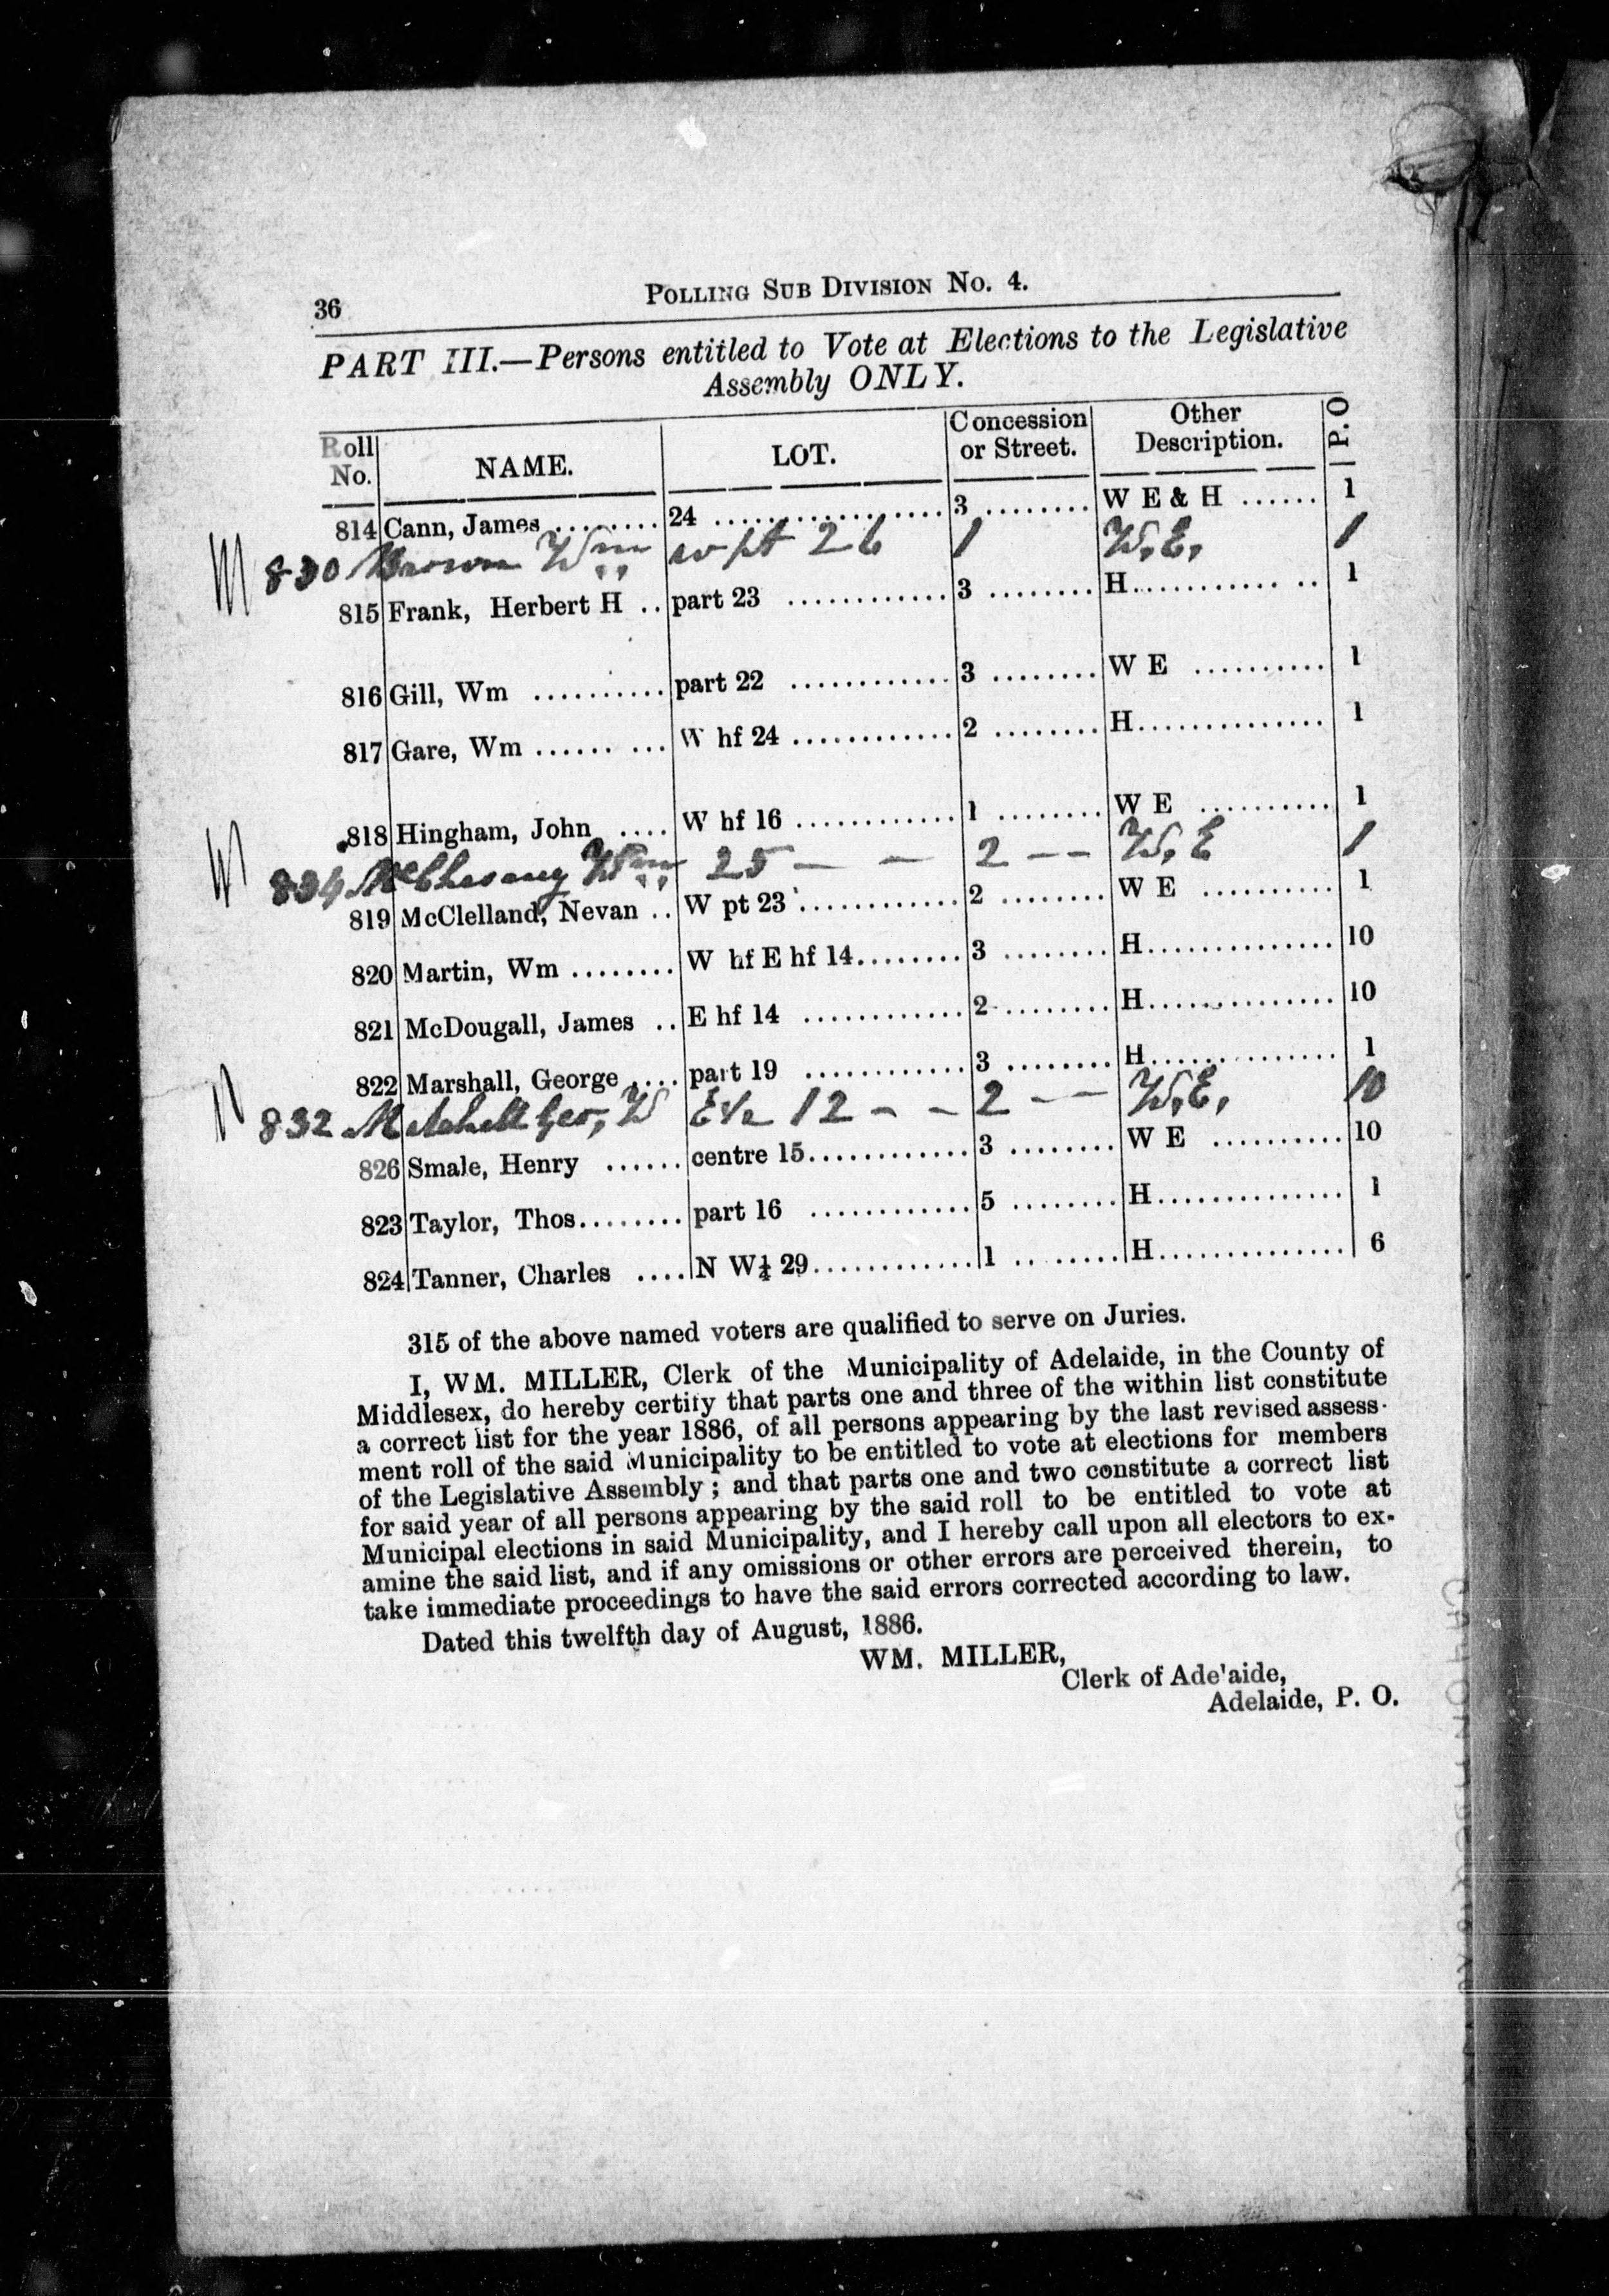 36
POLLING SUB DIVISION NO. 4.
PART III.—Persons entitled to Vote at Elections to the Legislative
Assembly ONLY.
Roll No. NAME. LOT. Concession or Street. Other Description. P. O
814 Cann, James ........ 24 .................. 3 ........ W E & H ...... 1
830 Brown Wm w pt 26 1 W. E. 1
815 Frank, Herbert H .. part 23 ............ 3 ........ H............ .. 1
816 Gill, Wm .......... part 22 ............ 3 ........ W E .......... 1
817 Gare, Wm ...... ... W hf 24 ............ 2 ........ H.............. 1
818 Hingham, John .... W hf 16 ............ 1 ........ W E .......... 1
834 Wm 25 — — 2 — — W. E 1
819 McClelland, Nevan .. W pt 23 ............ 2 ........ W E .......... 1
820 Martin, Wm ........ W hf E hf 14........ 3 ........ H.............. 10
821 McDougall, James .. E hf 14 ............ 2 ........ H.............. 10
822 Marshall, George .... part 19 ............ 3 ........ H.............. 1
832 Mitchell Geo, W E ½ 12 – – 2 – – W. E. 10
826 Smale, Henry ...... centre 15............ 3 ........ W E .......... 10
823 Taylor, Thos........ part 16 ............ 5 ........ H.............. 1
824 Tanner, Charles .... N W¼ 29............ 1 .. ...... H.............. 6
315 of the above named voters are qualified to serve on Juries.
I, WM. MILLER, Clerk of the Municipality of Adelaide, in the County of
Middlesex, do hereby certify that parts one and three of the within list constitute
a correct list for the year 1886, of all persons appearing by the last revised assess-
ment roll of the said Municipality to be entitled to vote at elections for members
of the Legislative Assembly ; and that parts one and two constitute a correct list
for said year of all persons appearing by the said roll to be entitled to vote at
Municipal elections in said Municipality, and I hereby call upon all electors to ex-
amine the said list, and if any omissions or other errors are perceived therein, to
take immediate proceedings to have the said errors corrected according to law.
Dated this twelfth day of August, 1886.
WM. MILLER,
Clerk of Ade'aide,
Adelaide, P. O.